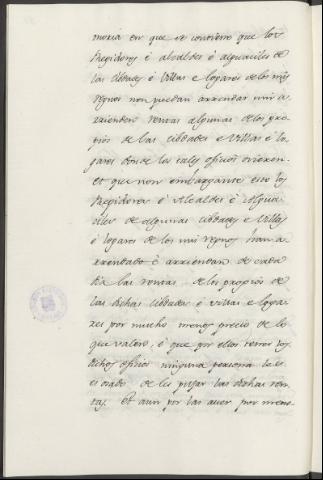 noria en que se contiene que los
Regidores é alcaldes é alguaciles de
las cibdades é villas e logares de los mis
regnos non puedan arrendar nin a-
rrienden rentas algunas de los pro-
pios de las cibdades e villas é lo-
gares donde los tales oficios ovieren.
Et que non embargante esto los
Regidores é Alcaldes é Algua-
ciles de algunas cibdades e Villas
é logares de los mis regnos han a-
rrendado é arriendan de cada
dia las rentas de los propios de
las dichas cibdades é villas e loga-
res por mucho menos precio de lo
que valen, é que por ellos tener los
dichos oficios ninguna persona les es
osado de les pujar las dichas ren-
tas. Et aun por las aver por meno-